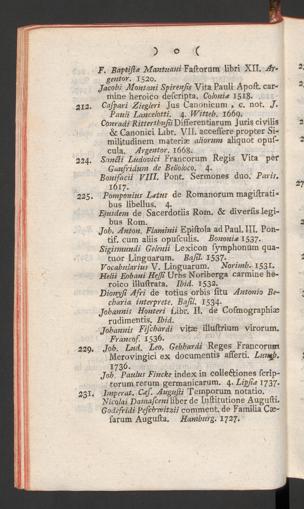 ) o (
F. Baptistæ Mantuani Fastorum libri XII. Ar-
gentor. 1520.
Jacobi Montani Spirensis Vita Pauli Apost. car-
mine heroico descripta. Coloniæ 1518.
212. Caspari Ziegleri Jus Canonicum, c. not. J.
Pauli Lancelotti. 4. Witteb. 1669.
Conradi Rittershusii Differentiarum Juris civilis
& Canonici Libr. VII. accessere propter Si-
militudinem materiæ aliorum aliquot opus-
cula. Argentor. 1668.
224. Sancti Ludovici Francorum Regis Vita per
Gaufridum de Belloloco. 4.
Bonifacii VIII. Pont. Sermones duo. Paris.
1617.
225. Pomponius Lætus de Romanorum magistrati-
bus libellus. 4.
Ejusdem de Sacerdotiis Rom. & diversis legi-
bus Rom.
Joh. Anton. Flaminii Epistola ad Paul. III. Pon-
tif. cum aliis opusculis. Bononiæ 1537.
Sigismundi Gelenii Lexicon symphonum qua-
tuor Linguarum. Basil. 1537.
Vocabularius V. Linguarum. Norimb. 1531.
Helii Eobani Hessi Urbs Noriberga carmine he-
roico illustrata. Ibid. 1532.
Dionysi Afri de totius orbis situ Antonio Be-
charia interprete. Basil. 1534.
Johannis Honteri Libr. II. de Cosmographiæ
rudimentis. Ibid.
Johannis Fischardi vitæ illustrium virorum.
Francof. 1536.
229. Joh. Lud. Leo. Gebhardi Reges Francorum
Merovingici ex documentis asserti. Lunęb.
1736.
Joh. Paulus Fincke index in collectiones scrip-
torum rerum germanicarum. 4. Lipsiæ 1737.
231. Imperat. Cæs. Augusti Temporum notatio.
Nicolai Damasceni liber de Institutione Augusti.
Godefridi Peschwitzii comment. de Familia Cæ-
sarum Augusta. Hamburg. 1727.